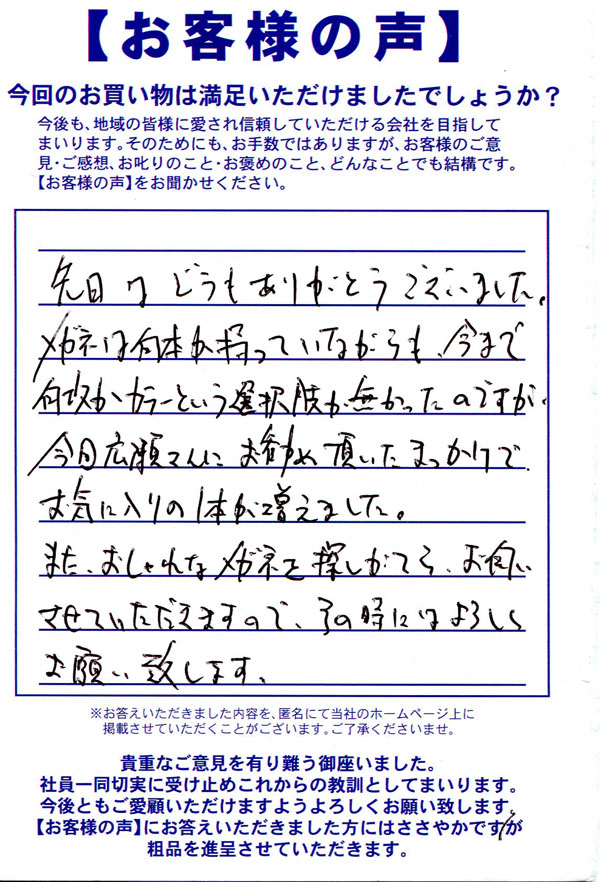 【お客様の声】
今回のお買い物は満足いただけましたでしょうか？
今後も、地域の皆様に愛され信頼していただける会社を目指して
まいります。そのためにも、お手数ではありますが、お客様のご意
見・ご感想、お叱りのこと・お褒めのこと、どんなことでも結構です。
【お客様の声】をお聞かせください。
先日はどうもありがとうございました。
メガネは何本か持っていながらも、今まで
何故かカラーという選択肢が無かったのですが、
今回広瀬さんにお勧め頂いたきっかけで
お気に入りの1本が増えました。
また、おしゃれなメガネを探しがてら、お伺い
させていただきますので、その時にはよろしく
お願い致します。
※お答えいただきました内容を、匿名にて当社のホームページ上に
掲載させていただくことがございます。ご了承くださいませ。
貴重なご意見を有り難う御座いました。
社員一同切実に受け止めこれからの教訓としてまいります。
今後ともご愛顧いただけますようよろしくお願い致します。
【お客様の声】にお答えいただきました方にはささやかですが
粗品を進呈させていただきます。